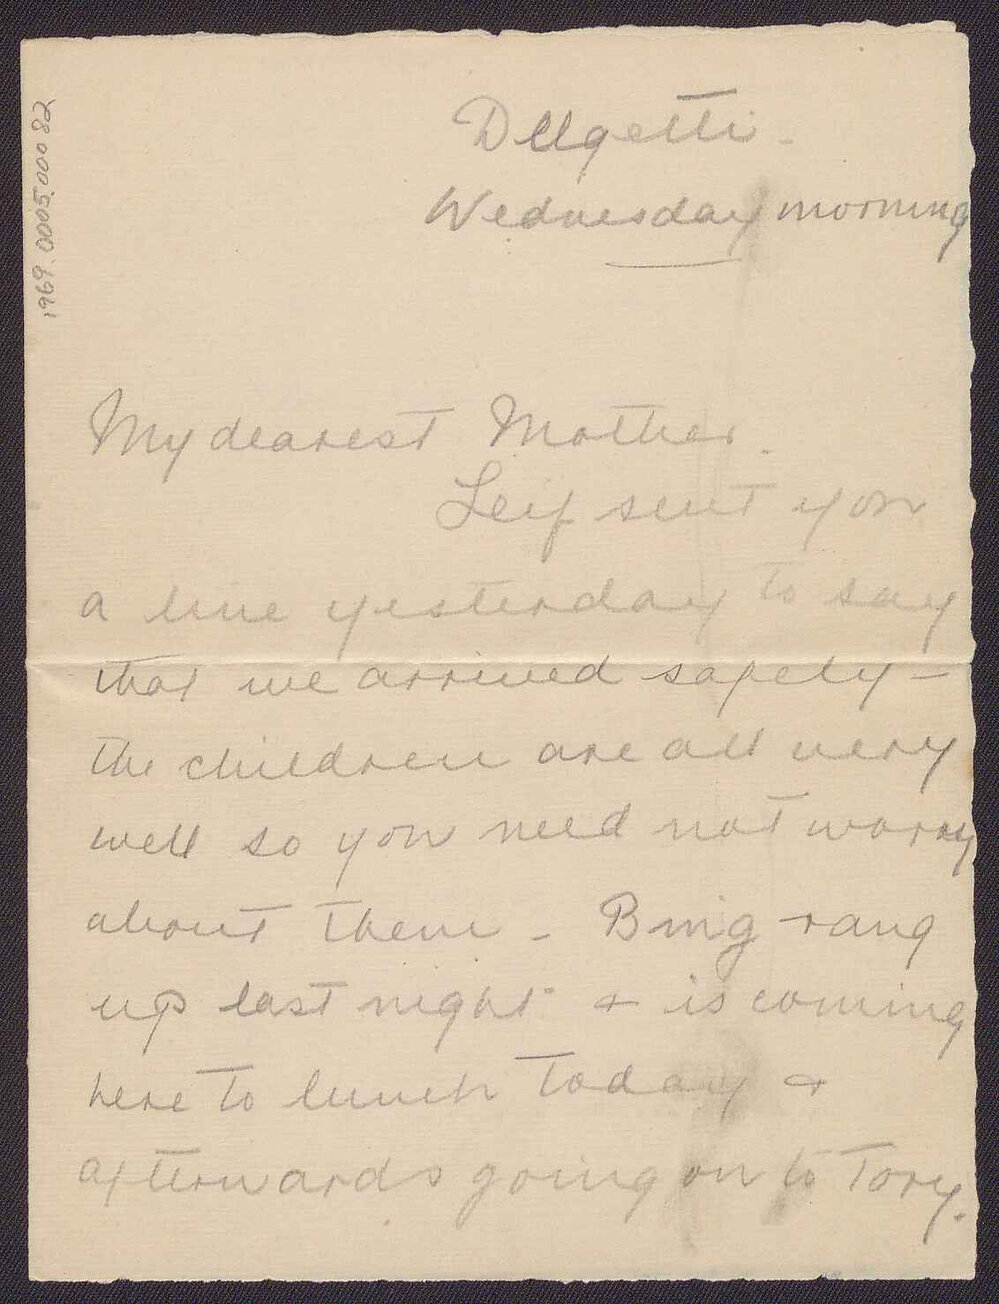 Delgetti -
Wednesday morning
My dearest Mother.
Leif sent you
a line yesterday to say
that we arrived safely -
the children are all very
well so you need not worry
about them - Bing rang
up last night & is coming
here to lunch today &
afterwards going on to Tory.
1969.0005.00082